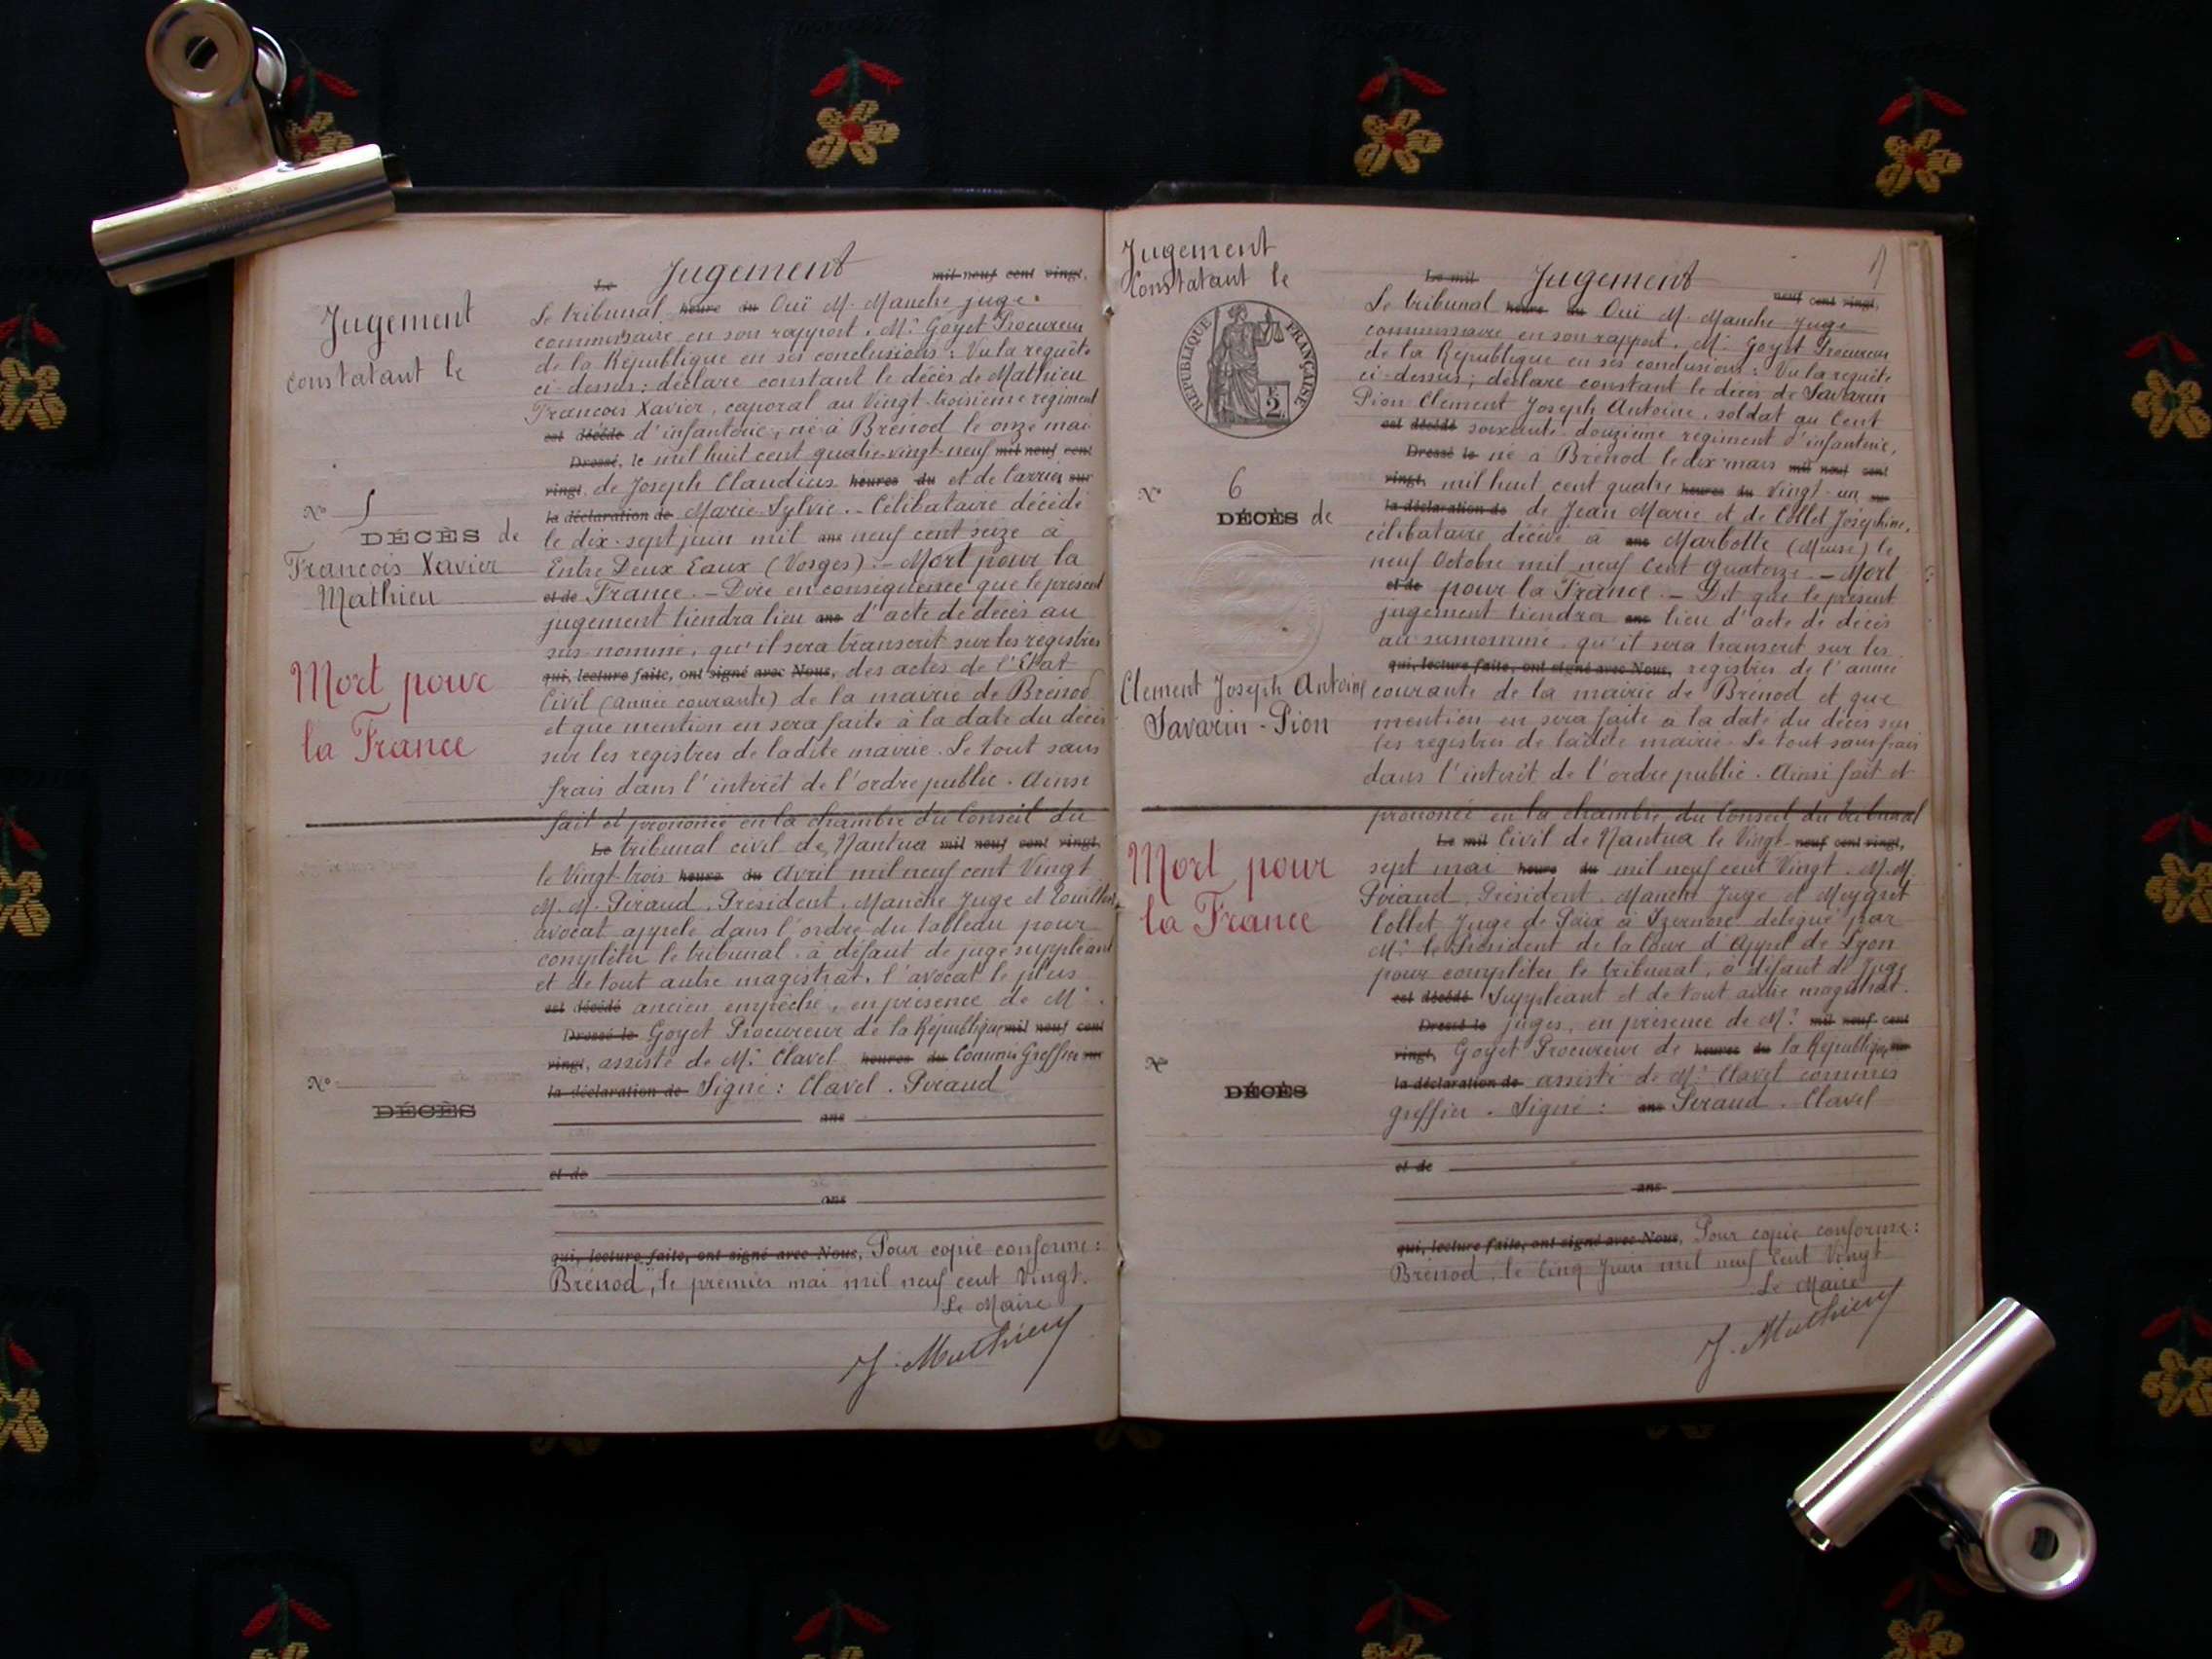 Jugement
constatant le
N° 5
DÉCÈS de
François Xavier
Mathieu
Mort pour
la France
N°
DÉCÈS
Le Jugement mil neuf cent vingt,
Le tribunal heure du Ouï M. Manche juge
commissaire en son rapport, Mr Goyet Procureur
de la République en ses conclusions : Vu la requête
ci-dessus : déclare constant le décès de Mathieu
François Xavier, caporal au Vingt-troisième régiment
est décédé d'infanterie, né à Brénod le onze mai
Dressé, le mil huit cent quatre-vingt-neuf mil neuf cent
vingt, de Joseph Claudius heures du et de Carrier sur
la déclaration de Marie-Sylvie. - Célibataire décédé
le dix-sept juin mil ans neuf cent seize à
Entre Deux Eaux (Vosges). - Mort pour la
et de France. - Dire en conséquence que le présent
jugement tiendra lieu ans d'acte de décès au
sus-nommé, qu'il sera transcrit sur les registres
qui, lecture faite, ont signé avec Nous, des actes de l'Etat
Civil (année courante) de la mairie de Brénod
et que mention en sera faite à la date du décès
sur les registres de ladite mairie. Le tout sans
frais dans l'intérêt de l'ordre public. Ainsi
fait et prononcé en la chambre du Conseil du
Le tribunal civil de Nantua mil neuf cent vingt,
le Vingt-trois heure du Avril mil neuf cent Vingt
M. M. Piraud, Président, Manche Juge et
avocat appelé dans l'ordre du tableau pour
compléter le tribunal à défaut de juge suppléant
et de tout autre magistrat, l'avocat le plus
est décédé ancien empêché, en présence de Mr
Dressé le Goyet Procureur de la République mil neuf cent
vingt, assisté de Mr Clavel heures du Commis Greffier sur
la déclaration de Signé : Clavel. Piraud
ans
et de
ans
qui, lecture faite, ont signé avec Nous, Pour copie conforme :
Brénod, le premier mai mil neuf cent Vingt.
Le Maire
J. Mathieu
Jugement
Constatant le
RÉPUBLIQUE FRANÇAISE
N° 6
DÉCÈS de
Clément Joseph Antoine
Savarin-Pion
Mort pour
la France
N°
DÉCÈS
Le mil Jugement neuf cent vingt,
Le tribunal heure du Ouï M. Manche Juge
commissaire en son rapport, Mr Goyet Procureur
de la République en ses conclusions : Vu la requête
ci-dessus ; déclare constant le décès de Savarin
Pion Clément Joseph Antoine, soldat au Cent
est décédé soixante-douzième régiment d'infanterie,
Dressé le né à Brénod le dix mars mil neuf cent
vingt, mil huit cent quatre heures du Vingt-un sur
la déclaration de de Jean Marie et de Collet Joséphine,
célibataire décédé à ans Marbotte (Meuse) le
neuf Octobre mil neuf Cent Quatorze - Mort
et de pour la France. - Dit que le présent
jugement tiendra ans lieu d'acte de décès
au susnommé, qu'il sera transcrit sur les
qui, lecture faite, ont signé avec Nous, registres de l'année
courante de la mairie de Brénod et que
mention en sera faite à la date du décès sur
les registres de ladite mairie. Le tout sans frais
dans l'intérêt de l'ordre public. Ainsi fait et
prononcé en la chambre du Conseil du tribunal
Le mil Civil de Nantua le Vingt- neuf cent vingt,
sept mai heure du mil neuf cent Vingt. M. M.
Piraud, Président, Manche Juge et Meygret
Collet Juge de Paix à Izernore délégué par
Mr le Président de la Cour d'Appel de Lyon
pour compléter le tribunal, à défaut de Juge
est décédé Suppléant et de tout autre magistrat.
Dressé le juges, en présence de Mr mil neuf cent
vingt, Goyet Procureur de heures du la République sur
la déclaration de assisté de Mr Clavel commis
greffier. Signé : ans Piraud. Clavel
et de
ans
qui, lecture faite, ont signé avec Nous, Pour copie conforme :
Brénod, le Cinq Juin mil neuf Cent Vingt
Le Maire
J. Mathieu